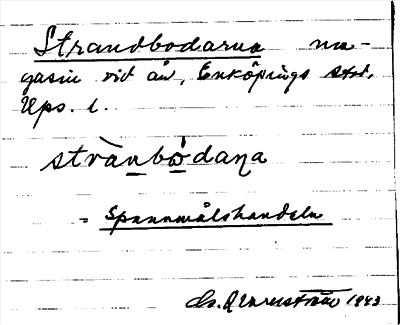 Strandbodarna ma-
gasin vid ån, Enköpings stad,
Ups. l.
strànbòdaṇa
= Spannmålshandeln
1943